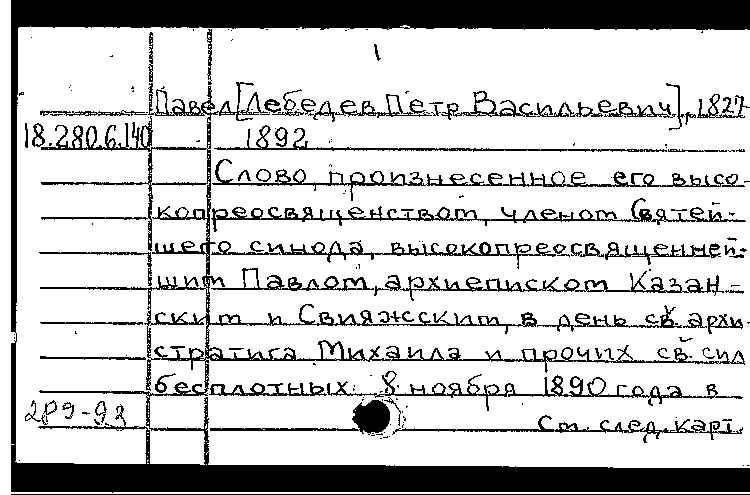 1
Павел [Лебедев, Петр Васильевич], 1827-
18.280.6.140 1892
Слово, произнесенное его высо-
копреосвященством, членом Святей-
шего синода, высокопреосвященней-
шим Павлом, архиепископом Казан-
ским и Свияжским, в день св. архи-
стратига Михаила и прочих св. сил
бесплотных 8 ноября 1890 года в
289-93 См. след. карт.